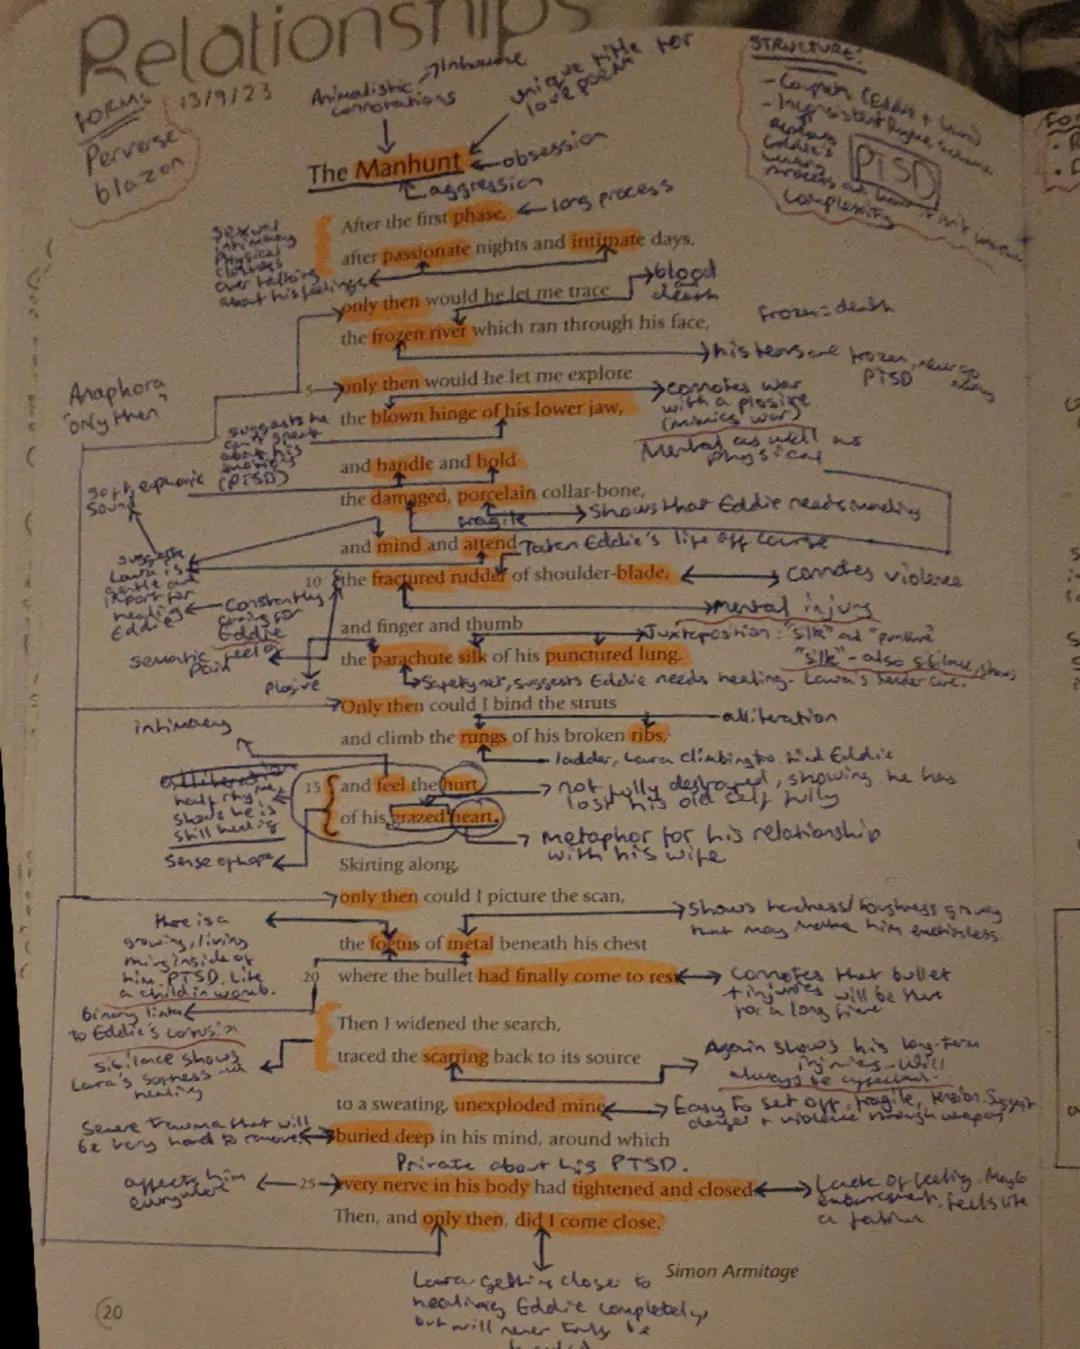 Relationships
FORM:
13/9/23
Perverse
blazon
Animalistic
connotations
Inhumane
unique title for
love poem
STRUCTURE:
- Couplets (Eddie + Laura)
- Inconsistent rhyme scheme
PTSD
complexity
The Manhunt
obsession
aggression
After the first phase,
long process
after passionate nights and intimate days,
sexual
intimacy
physical
closeness
over talking
about his feelings
only then would he let me trace
blood
death
the frozen river which ran through his face,
frozen = death
his tears are frozen, never go away
PTSD
Anaphora
'only then'
5
only then would he let me explore
the blown hinge of his lower jaw,
connotes war
with a plosive
(mimics war)
Mental as well as
physical
suggests he
can't speak
about his
(PTSD)
and handle and hold
the damaged, porcelain collar-bone,
fragile
Shows that Eddie needs mending
soft euphonic
sound
and mind and attend
Taken Eddie's life off course
10 the fractured rudder of shoulder-blade,
connotes violence
mental injury
suggests
Laura is
gentle and
import for
healing
Eddie
Constantly
caring for
Eddie
and finger and thumb
Juxtaposition: "silk" and "puncture"
the parachute silk of his punctured lung.
"silk" - also sibilance, shows
Laura's tender care.
Safety net, suggests Eddie needs healing.
sematic feel of
pain
Plosive
Only then could I bind the struts
alliteration
and climb the rungs of his broken ribs,
ladder, Laura climbing to find Eddie
intimacy
15 and feel the hurt
not fully destroyed, showing he has
lost his old self fully
of his grazed heart.
metaphor for his relationship
with his wife
alliteration
half rhyme,
shows he is
still healing
sense of hope
Skirting along,
only then could I picture the scan,
the foetus of metal beneath his chest
Shows hardness/toughness
that may make him emotionless.
20 where the bullet had finally come to rest.
Connotes that bullet
+ injuries will be there
for a long time
there is a
growing, living
thing inside of
him. PTSD. Like
a child in womb.
Binary links
to Eddie's
Then I widened the search,
traced the scarring back to its source
Again shows his long-term
injuries - will
always be affected.
sibilance shows
Lara's softness
healing
to a sweating, unexploded mine
Easy to set off, fragile, tension. Suggest
danger + violence through weapon
buried deep in his mind, around which
Severe trauma that will
be very hard to remove
Private about his PTSD.
25 every nerve in his body had tightened and closed.
affects him
everywhere
Lack of feeling. Maybe
embarrassment. feels like
a failure
Then, and only then, did I come close.
Simon Armitage
Laura getting closer to
healing Eddie completely,
but will never truly be
20